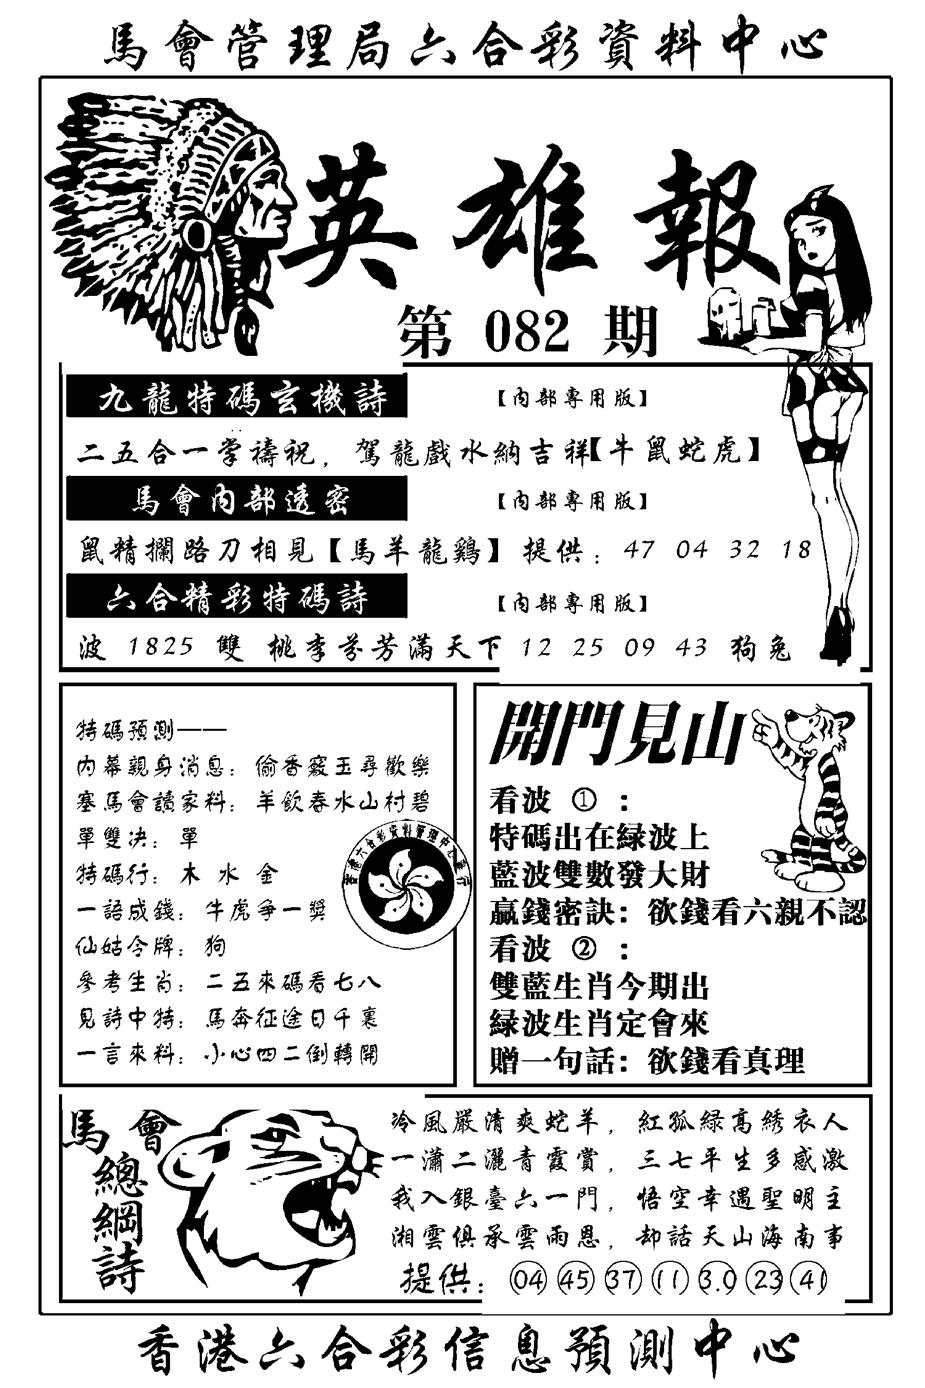 馬會管理局六合彩資料中心
英雄報
第 082 期
九龍特碼玄機詩 【內部專用版】
二五合一掌禱祝，駕龍戲水納吉祥【牛鼠蛇虎】
馬會內部透密 【內部專用版】
鼠精攔路刀相見【馬羊龍鷄】 提供：47 04 32 18
六合精彩特碼詩 【內部專用版】
波 1825 雙 桃李芬芳滿天下 12 25 09 43 狗兔
特碼預測——
內幕親身消息：偷香竊玉尋歡樂
塞馬會讀家料：羊飲春水山村碧
單雙决：單
特碼行：木 水 金
一語成錢：牛虎爭一獎
仙姑令牌：狗
參考生肖：二五來碼看七八
見詩中特：馬奔征途日千裏
一言來料：小心四二倒轉開
香港六合彩資料管理中心發行
開門見山
看波 ①：
特碼出在緑波上
藍波雙數發大財
贏錢密訣：欲錢看六親不認
看波 ②：
雙藍生肖今期出
緑波生肖定會來
贈一句話：欲錢看真理
馬會
總綱詩
冷風嚴清爽蛇羊，紅孤緑高綉衣人
一瀟二灑青霞賞，三七平生多感激
我入銀臺六一門，悟空幸遇聖明主
湘雲俱承雲雨恩，却話天山海南事
提供：04 45 37 11 3.0 23 41
香港六合彩信息預測中心